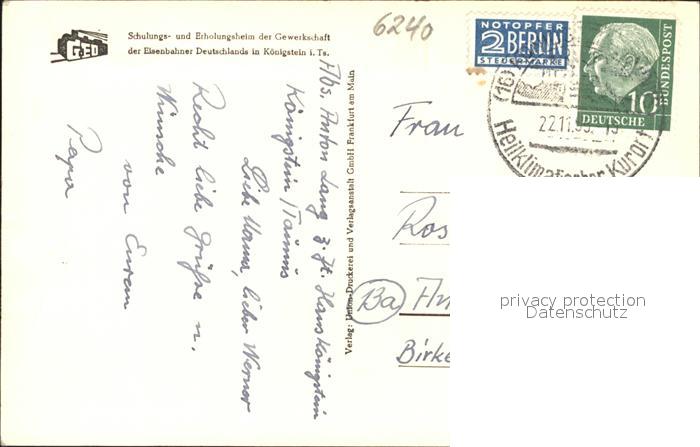 GED
Schulungs- und Erholungsheim der Gewerkschaft
der Eisenbahner Deutschlands in Königstein i. Ts.
6240
NOTOPFER
2 BERLIN
STEUERMARKE
DEUTSCHE BUNDESPOST
10
(16)
22.11.
Heilklimatischer Kurort
Abs. Anton Lang z. Zt. Haus Königstein
Königstein / Taunus
Liebe Mama, lieber Werner
Recht liebe Grüße u.
Wünsche
von Eurem
Papa
Verlag: Union-Druckerei und Verlagsanstalt GmbH Frankfurt am Main
Frau
Ros
13a
Birke
privacy protection
Datenschutz